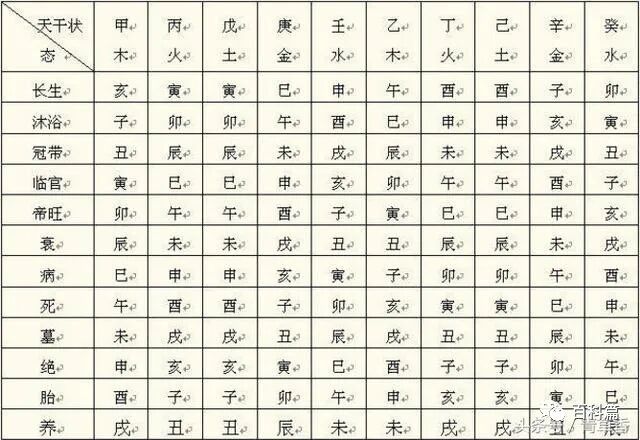 天干状 甲 丙 戊 庚 壬 乙 丁 己 辛 癸
态 木 火 土 金 水 木 火 土 金 水
长生 亥 寅 寅 巳 申 午 酉 酉 子 卯
沐浴 子 卯 卯 午 酉 巳 申 申 亥 寅
冠带 丑 辰 辰 未 戌 辰 未 未 戌 丑
临官 寅 巳 巳 申 亥 卯 午 午 酉 子
帝旺 卯 午 午 酉 子 寅 巳 巳 申 亥
衰 辰 未 未 戌 丑 丑 辰 辰 未 戌
病 巳 申 申 亥 寅 子 卯 卯 午 酉
死 午 酉 酉 子 卯 亥 寅 寅 巳 申
墓 未 戌 戌 丑 辰 戌 丑 丑 辰 未
绝 申 亥 亥 寅 巳 酉 子 子 卯 午
胎 酉 子 子 卯 午 申 亥 亥 寅 巳
养 戌 丑 丑 辰 未 未 戌 戌 丑 辰
百科篇
头条号 /